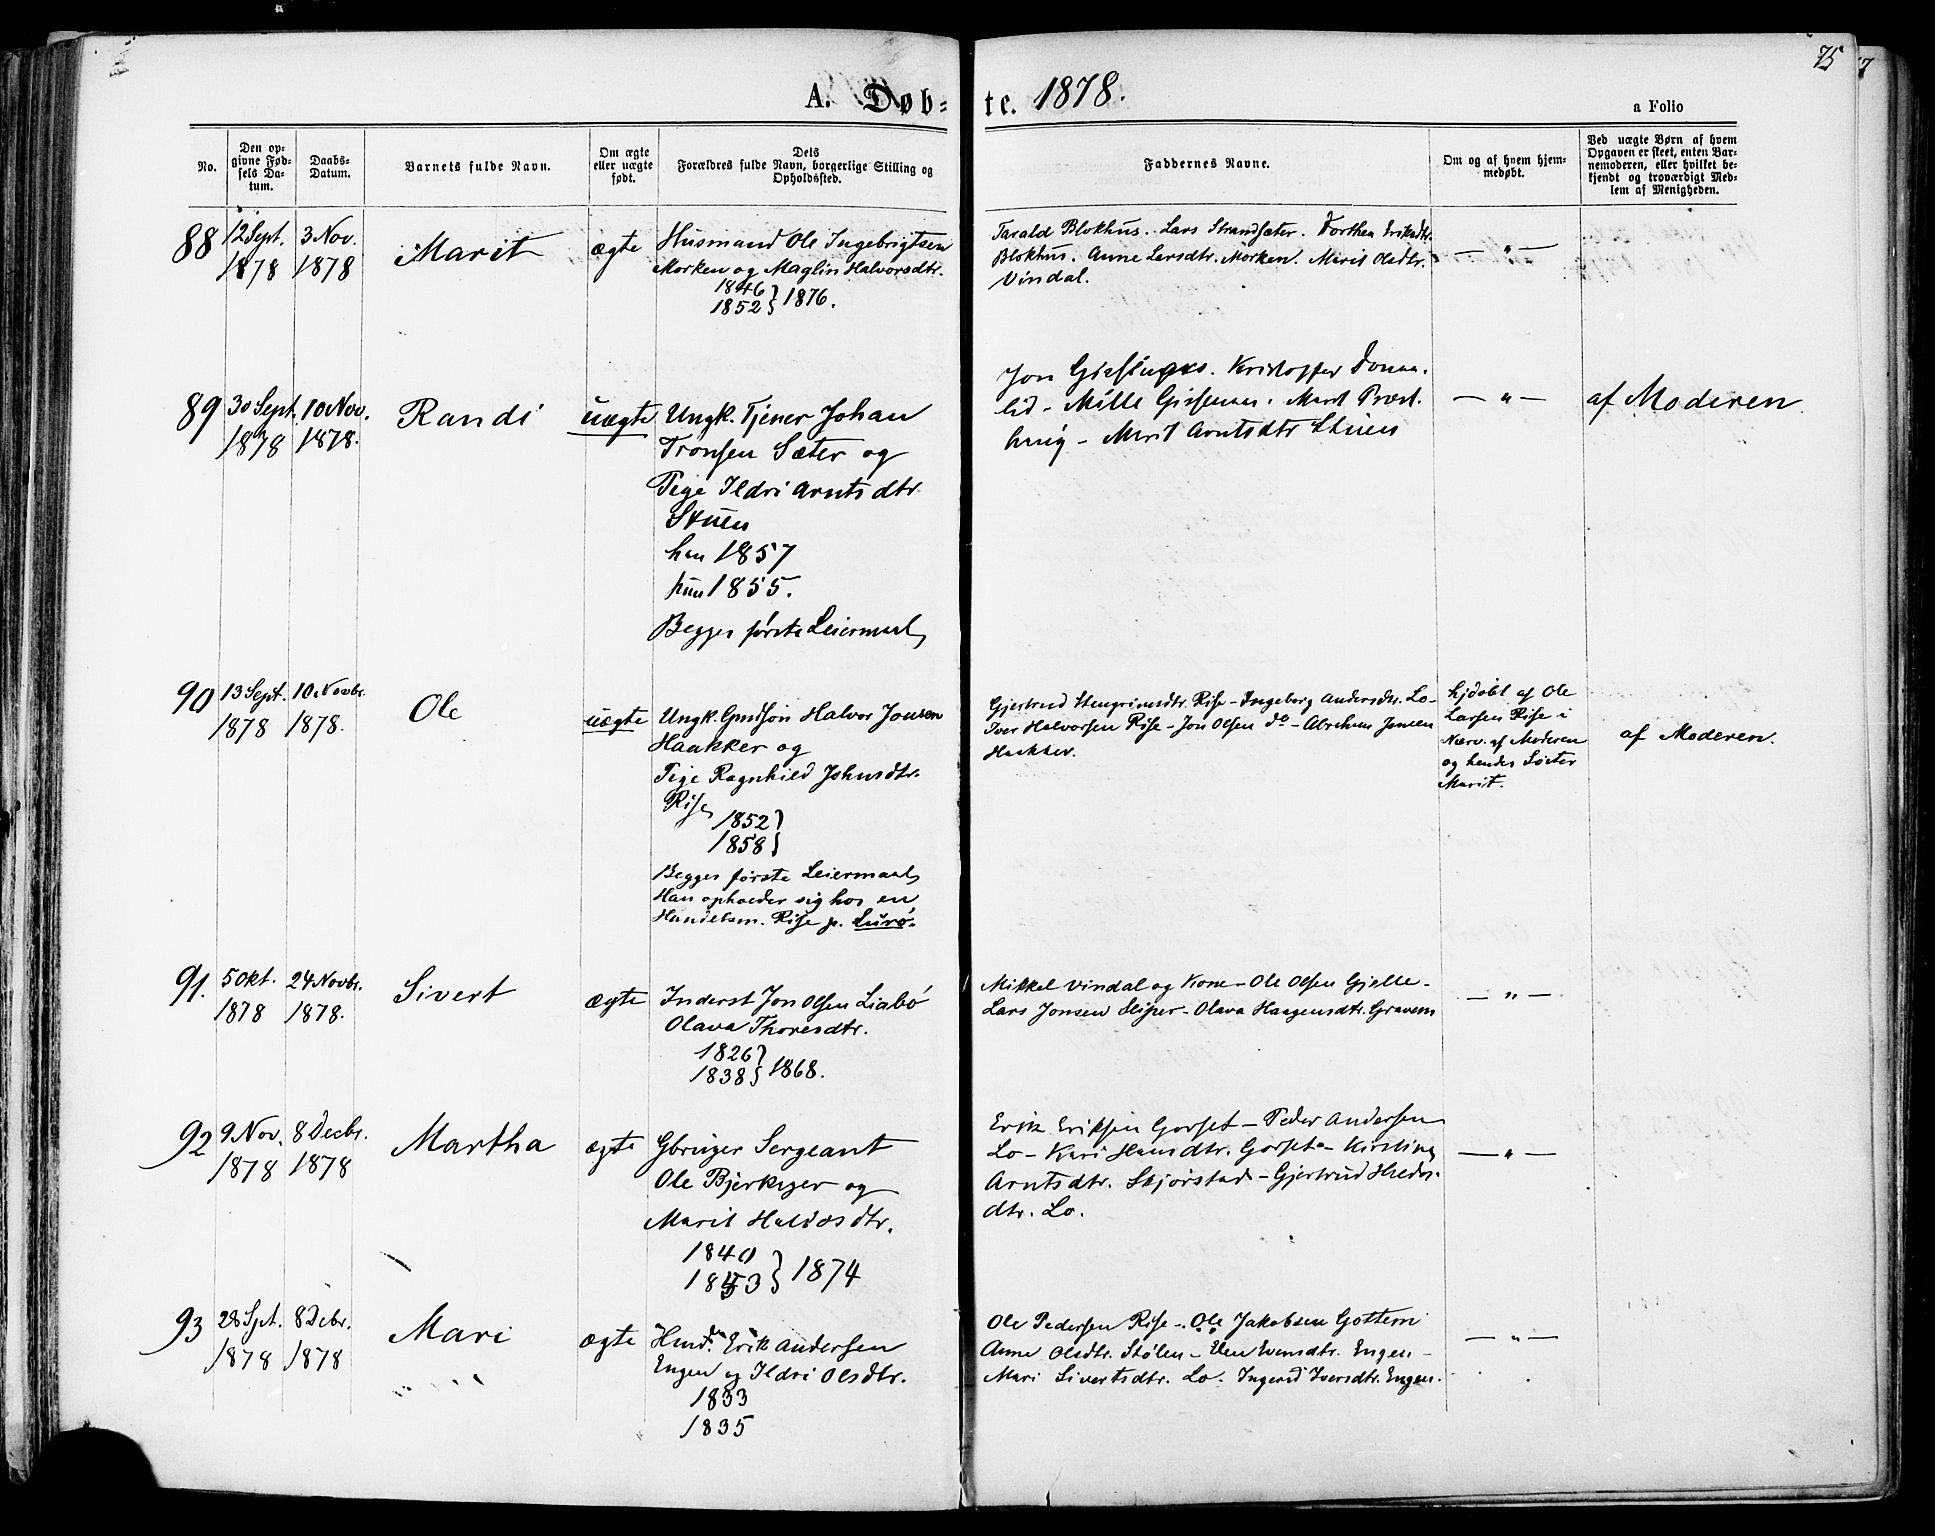 75
A. Døb-te. 1878.
a Folio
No.
Den opgivne Fødsels Datum.
Daabs-Datum.
Barnets fulde Navn.
Om ægte eller uægte født.
Dels Forældres fulde Navn, borgerlige Stilling og Opholdssted.
Faddernes Navne.
Om og af hvem hjemmedøbt.
Ved uægte Børn af hvem Opgaven er skeet, enten Barnemoderen, eller hvilket bekjendt og troværdigt Medlem af Menigheden.
88
12 Sept. 1878
3 Nov. 1878
Marit
ægte
Husmand Ole Ingebrigtsen
Morken og Maglin Halvorsdtr.
1846
1852 } 1876.
Tarald Blokhus. Lars Strandsæter. Dorthea Eriksdtr.
Blokhus. Anne Larsdtr. Morken. Marit Olsdtr.
Vindal.
— " —
89
30 Sept. 1878
10 Nov. 1878.
Randi
uægte
Ungk. Tjener Johan
Tronsen Sæter og
Pige Ildri Arntsdtr.
Stuen
han 1857
hun 1855.
Begges første Leiermaal
Jon
Kristoffer
Mille
Marit Arntsdtr Stuen
— " —
af Moderen
90
13 Sept. 1878
10 Novbr. 1878.
Ole
uægte
Ungk. Gmdsøn Halvor Jonsen
Haakker og
Pige Ragnhild Johnsdtr.
Rise
1852 }
1858 }
Begges første Leiermaal
Han opholder sig hos en
Handelsm. Rise p. Lurø.
Gjertrud Stengrimsdtr. Rise - Ingeborg Andersdtr. Lo -
Iver Halvorsen Rise - Jon Olsen do - Abraham Jonsen
Haakker.
hjdøbt af Ole
Larsen Rise i
Nærv. af Moderen
og hendes Søster
Marit.
af Moderen.
91.
5 Okt. 1878
24 Novbr. 1878.
Sivert
ægte
Inderst Jon Olsen Liabø
Olava Thoresdtr.
1826 }
1838 } 1868.
Mikkel Vindal og Kone - Ole Olsen Gjelle -
Lars Jonsen Sliper - Olava Haagensdtr. Gravem
— " —
92
9 Nov. 1878
8 Decbr. 1878
Martha
ægte
Gbruger Sergeant
Ole Bjerkager og
Marit Haldosdtr.
1840 }
1853 } 1874
Erik Eriksen Gorset - Peder Andersen
Lo - Kari Hansdtr. Gorset - Kirstine
Arntsdtr. Skjørstad - Gjertrud
dtr. Lo.
— " —
93
28 Spt. 1878
8 Debr. 1878
Mari
ægte
Husmd. Erik Andersen
Engen og Ildri Olsdtr.
1833
1835
Ole Pedersen Rise - Ole Jakobsen Gottem
Anne Olsdtr. Stølen - Elen Evensdtr. Engen -
Mari Sivertsdtr. Lo. Ingerid Iversdtr. Engen.
— " —